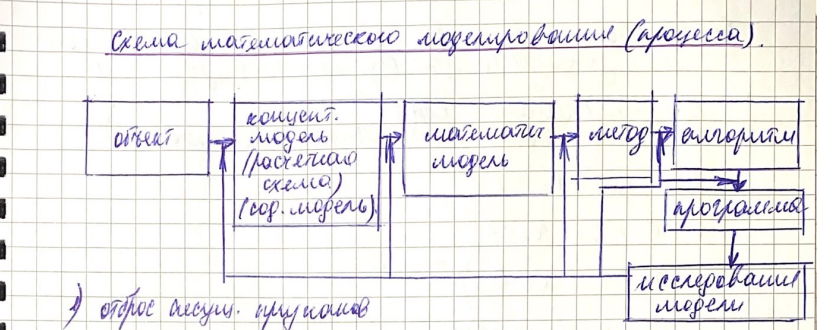 Схема математического моделирования (процесса).
объект
концепт.
модель
(расчетная
схема)
(сод. модель).
математич
модель
метод
алгоритм
программа
исследования
модели
1) отброс несущ. признаков